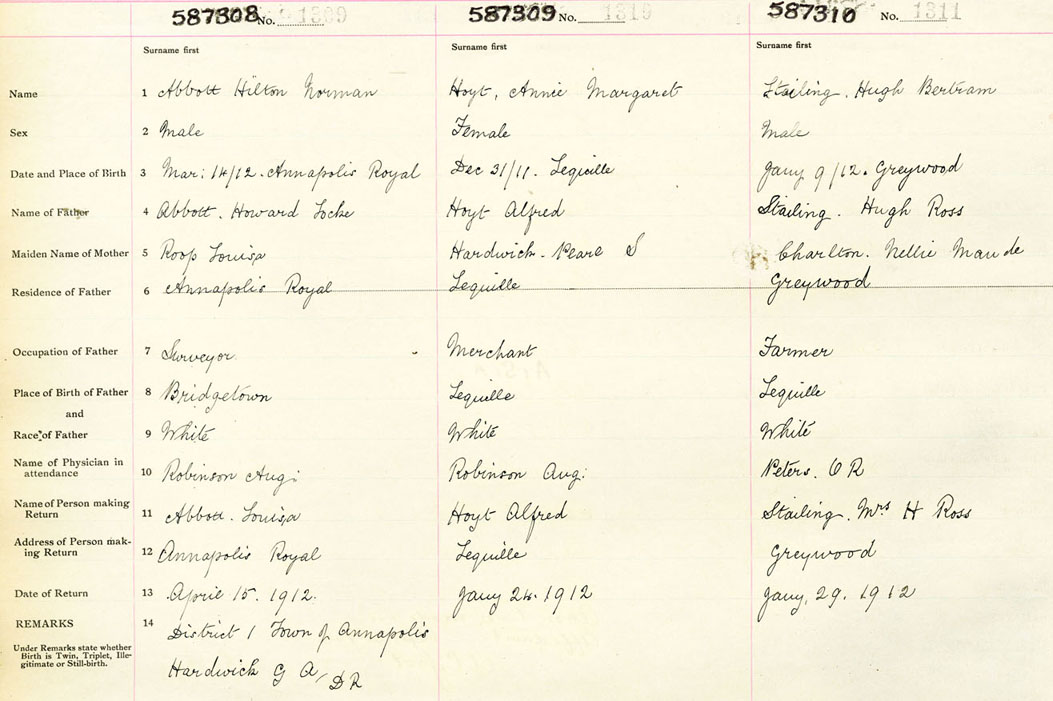 587308 No. 1309 587309 No. 1310 587310 No. 1311
Surname first Surname first Surname first
Name 1 Abbott Hilton Norman Hoyt, Annie Margaret Stailing. Hugh Bertram
Sex 2 Male Female Male
Date and Place of Birth 3 Mar: 14/12. Annapolis Royal Dec 31/11. Lequille Jany 9/12. Greywood
Name of Father 4 Abbott. Howard Locke Hoyt Alfred Stailing. Hugh Ross
Maiden Name of Mother 5 Roop Louisa Hardwick. Pearl S Charlton. Nellie Maude
Residence of Father 6 Annapolis Royal Lequille Greywood
Occupation of Father 7 Surveyor Merchant Farmer
Place of Birth of Father 8 Bridgetown Lequille Lequille
and
Race of Father 9 White White White
Name of Physician in
attendance 10 Robinson Aug: Robinson Aug: Peters. O R
Name of Person making
Return 11 Abbott. Louisa Hoyt Alfred Stailing. Mrs H Ross
Address of Person mak-
ing Return 12 Annapolis Royal Lequille Greywood
Date of Return 13 April 15. 1912. Jany 24. 1912 Jany. 29. 1912
REMARKS 14 District 1 Town of Annapolis
Under Remarks state whether
Birth is Twin, Triplet, Ille-
gitimate or Still-birth.
Hardwick G A, DR